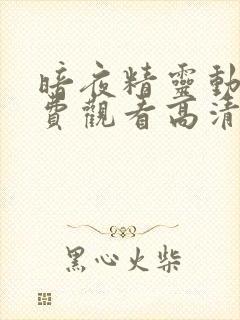 暗夜精靈動
費觀看高清
黑心火柴